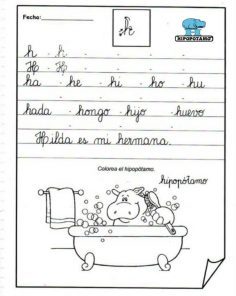 Fecho:
h
HIPOPÓTAMO
h - h - - -
H - H - - -
ha - he - hi - ho - hu
hada - hongo - hijo - huevo
Hilda es mi hermana.
Colorea el hipopótamo.
hipopótamo